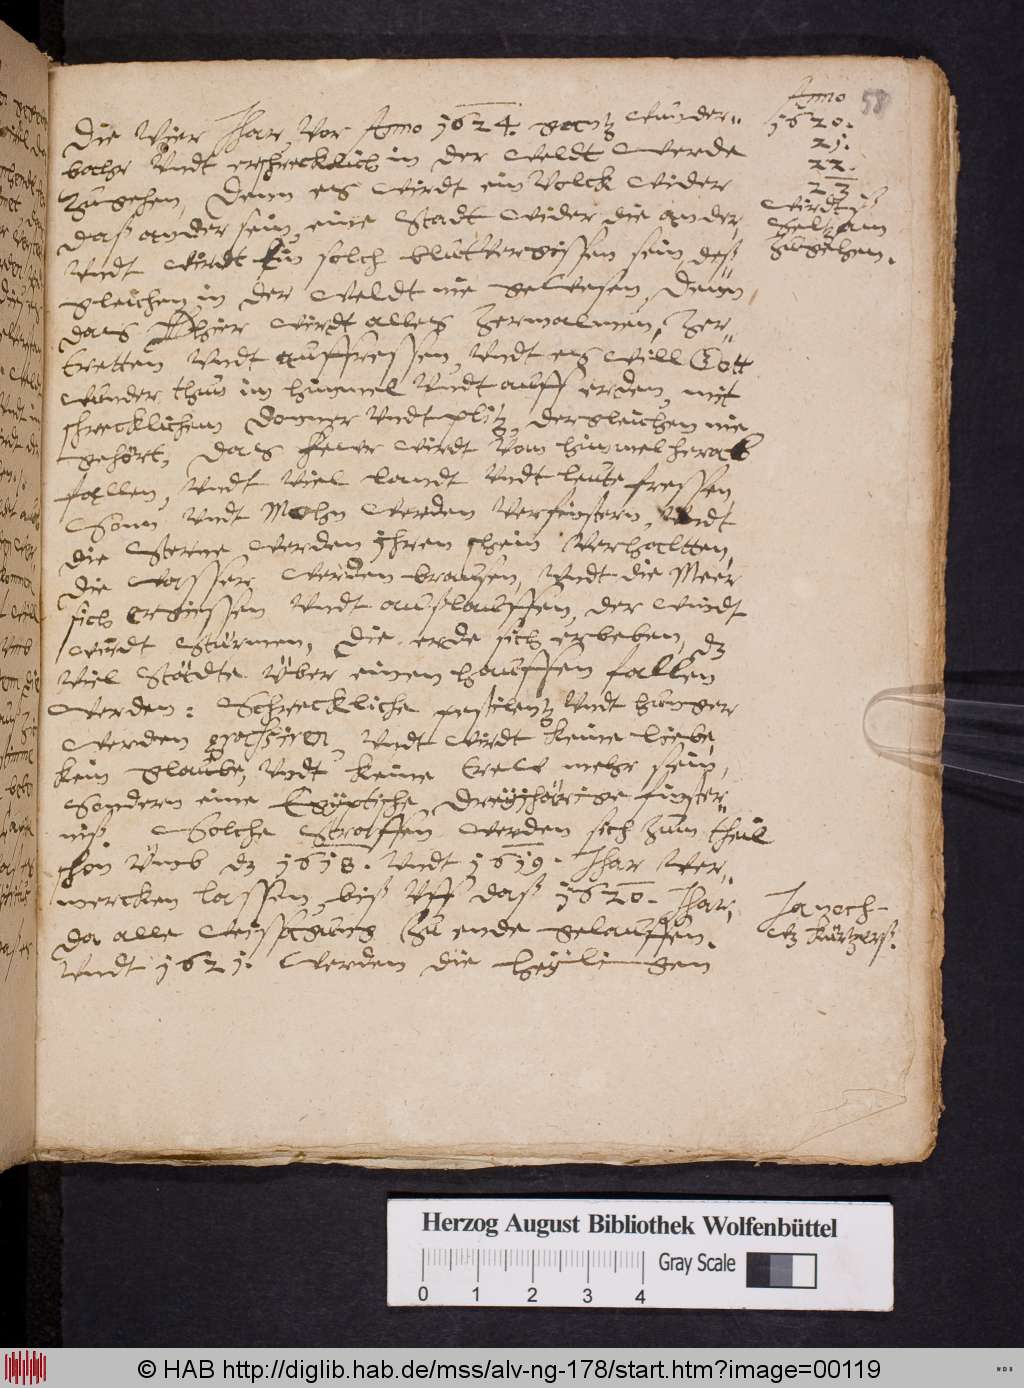 58
Die Vier Jhar Vor Anno 1624. gantz wunder-
bahr Vndt erschrecklich in der Weldt werde
Zugehen, Denn es wirdt ein Volck wider
daß ander sein, eine Stadt wider die ander,
Vndt wirdt Ein solch blutvergissen sein, deß
gleichen in der Weldt nie gewesen, Denn
das Thier wirdt alles Zermalmen, Zer-
tretten Vndt auffressen, Vndt es will Gott
wunder thun im himmel Vndt auff erden, mit
schrecklichem Donner Vndt plitz, dergleichen nie
gehört, das feur wirdt Vom himmel herab
fallen, Vndt Viel landt Vndt leute fressen,
Sonn Vndt Mohn werden Verfinstern, Vndt
die Sterne werden ihren schein Verhaltten,
die wasser werden brausen, Vndt die Meer
sich ergiessen Vndt außlauffen, der windt
wirdt Stürmen, Die erde sich erbeben, dz
Viel Städte Vber einen hauffen fallen
werden: Schreckliche pestilentz Vndt hunger
werden grassiren, Vndt wirdt keine liebe,
kein glaube, Vndt keine trew mehr sein,
Sondern eine Egyptische Dreyjhärige finster-
niß Solche Straffen werden sich Zum theil
schon Vmb dz 1618. Vndt 1619. Jhar Ver-
mercken lassen, biß Vff daß 1620. Jhar,
da alle weissagung Zu ende gelauffen.
Vndt 1621. werden die heyligen
Anno
1620.
21.
22.
23
wirdts
Seltzam
Zugehen.
Herzog August Bibliothek Wolfenbüttel
Gray Scale
0 1 2 3 4
© HAB http://diglib.hab.de/mss/alv-ng-178/start.htm?image=00119